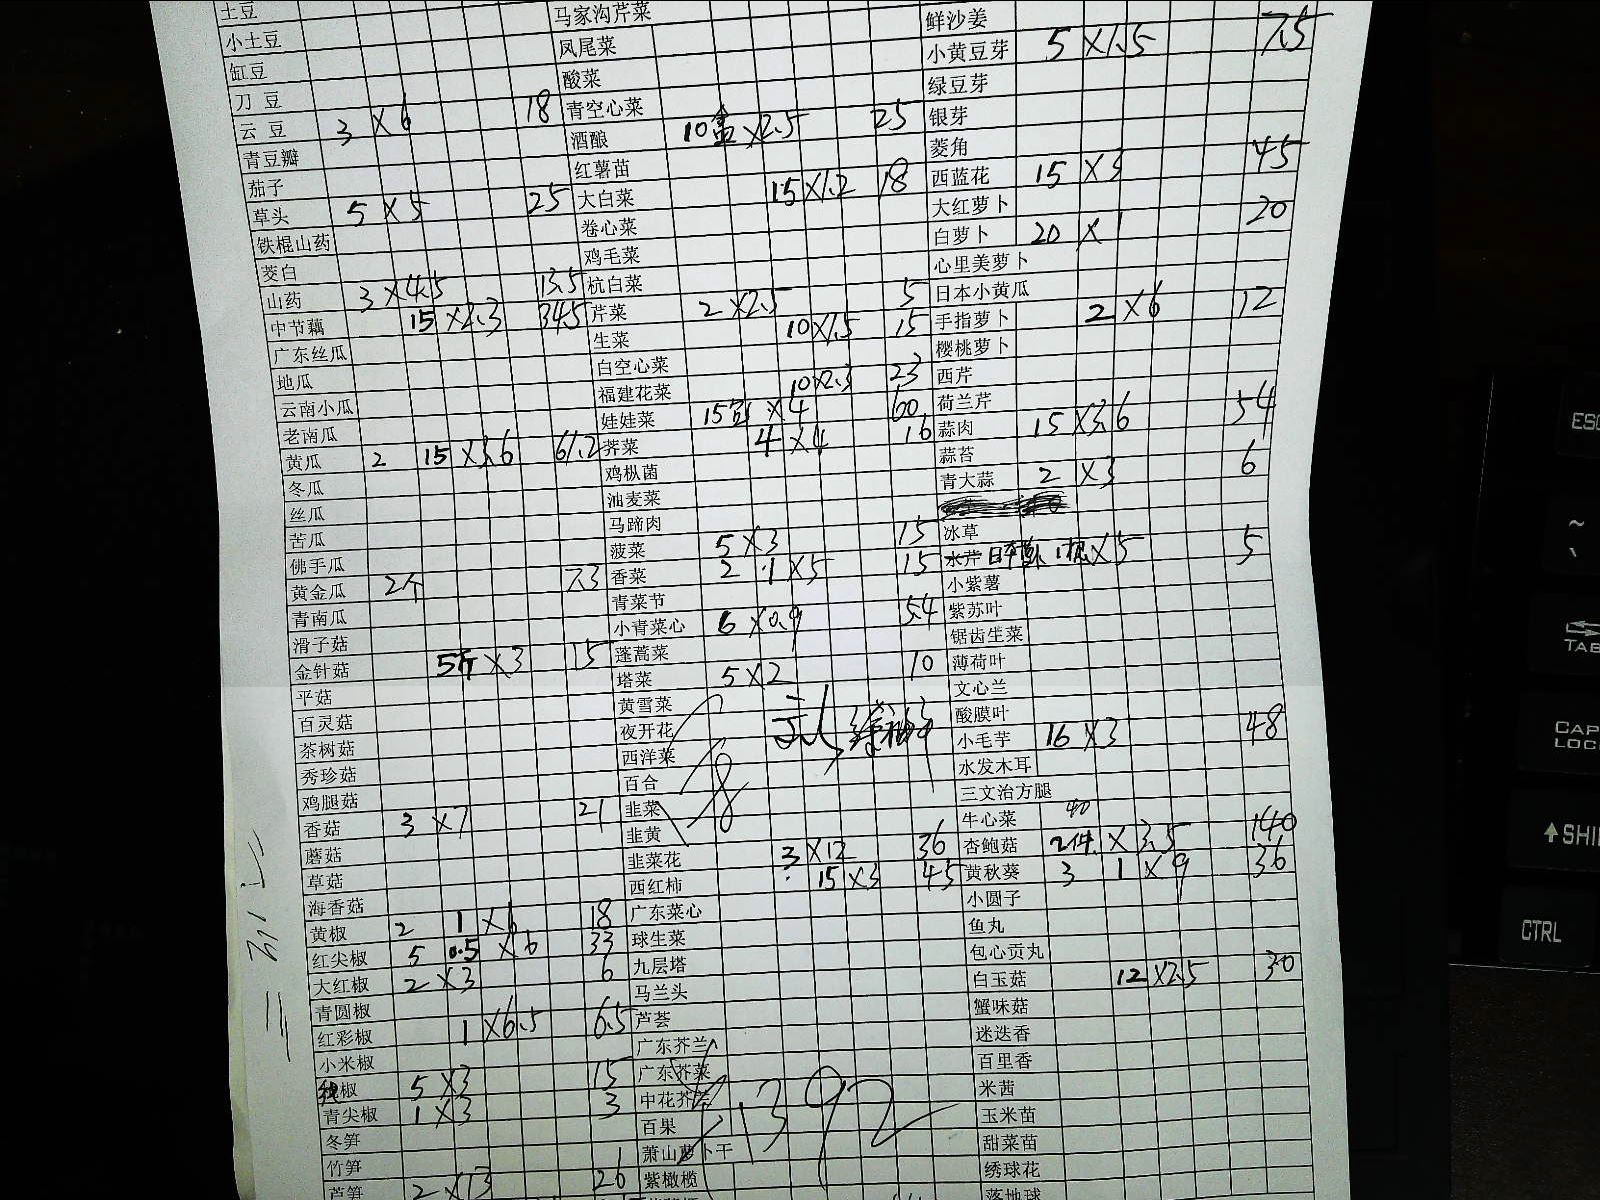 土豆
小土豆
缸豆
刀 豆
云 豆 3 × 6 18
青豆瓣
茄子
草头 5 × 5 25
铁棍山药
茭白
山药 3 × 4.5 13.5
中节藕 15 × 2.3 34.5
广东丝瓜
地瓜
云南小瓜
老南瓜
黄瓜 2 15 × 3.6 61.2
冬瓜
丝瓜
苦瓜
佛手瓜
黄金瓜 2个 7.3
青南瓜
滑子菇
金针菇 5斤 × 3 15
平菇
百灵菇
茶树菇
秀珍菇
鸡腿菇
香菇 3 × 7 21
蘑菇
草菇
海香菇
黄椒 2 1 × 6 18
红尖椒 5 0.5 × 6 33
大红椒 2 × 3 6
青圆椒
红彩椒 1 × 6.5 6.5
小米椒
椒 5 × 3 15
青尖椒 1 × 3 3
冬笋
竹笋
芦笋 2 × 13 26
马家沟芹菜
凤尾菜
酸菜
青空心菜
酒酿 10盒 × 2.5 25
红薯苗
大白菜 15 × 1.2 18
卷心菜
鸡毛菜
杭白菜
芹菜 2 × 2.5 5
生菜 10 × 1.5 15
白空心菜
福建花菜 10 × 2.3 23
娃娃菜 15 × 4 60
荠菜 4 × 4 16
鸡枞菌
油麦菜
马蹄肉
菠菜 5 × 3 15
香菜 2 1 × 5 15
青菜节
小青菜心 6 × 0.9 5.4
蓬蒿菜
塔菜 5 × 2 10
黄雪菜
夜开花
西洋菜
百合
韭菜
韭黄
韭菜花 3 × 12 36
西红柿 15 × 3 45
广东菜心
球生菜
九层塔
马兰头
芦荟
广东芥兰
广东芥菜
中花芥兰
百果
萧山萝卜干
紫橄榄
1392
鲜沙姜
小黄豆芽 5 × 1.5 7.5
绿豆芽
银芽
菱角
西蓝花 15 × 3 45
大红萝卜
白萝卜 20 × 1 20
心里美萝卜
日本小黄瓜
手指萝卜 2 × 6 12
樱桃萝卜
西芹
荷兰芹
蒜肉 15 × 3.6 54
蒜苔
青大蒜 2 × 3 6
冰草
水芹 日本 1根 × 5 5
小紫薯
紫苏叶
锯齿生菜
薄荷叶
文心兰
酸膜叶
小毛芋 16 × 3 48
水发木耳
三文治方腿
牛心菜 40
杏鲍菇 2件 × 3.5 140
黄秋葵 3 1 × 9 36
小圆子
鱼丸
包心贡丸
白玉菇 12 × 2.5 30
蟹味菇
迷迭香
百里香
米茜
玉米苗
甜菜苗
绣球花
落地球
ESC
~
TAB
CAPS
LOCK
SHI
CTRL